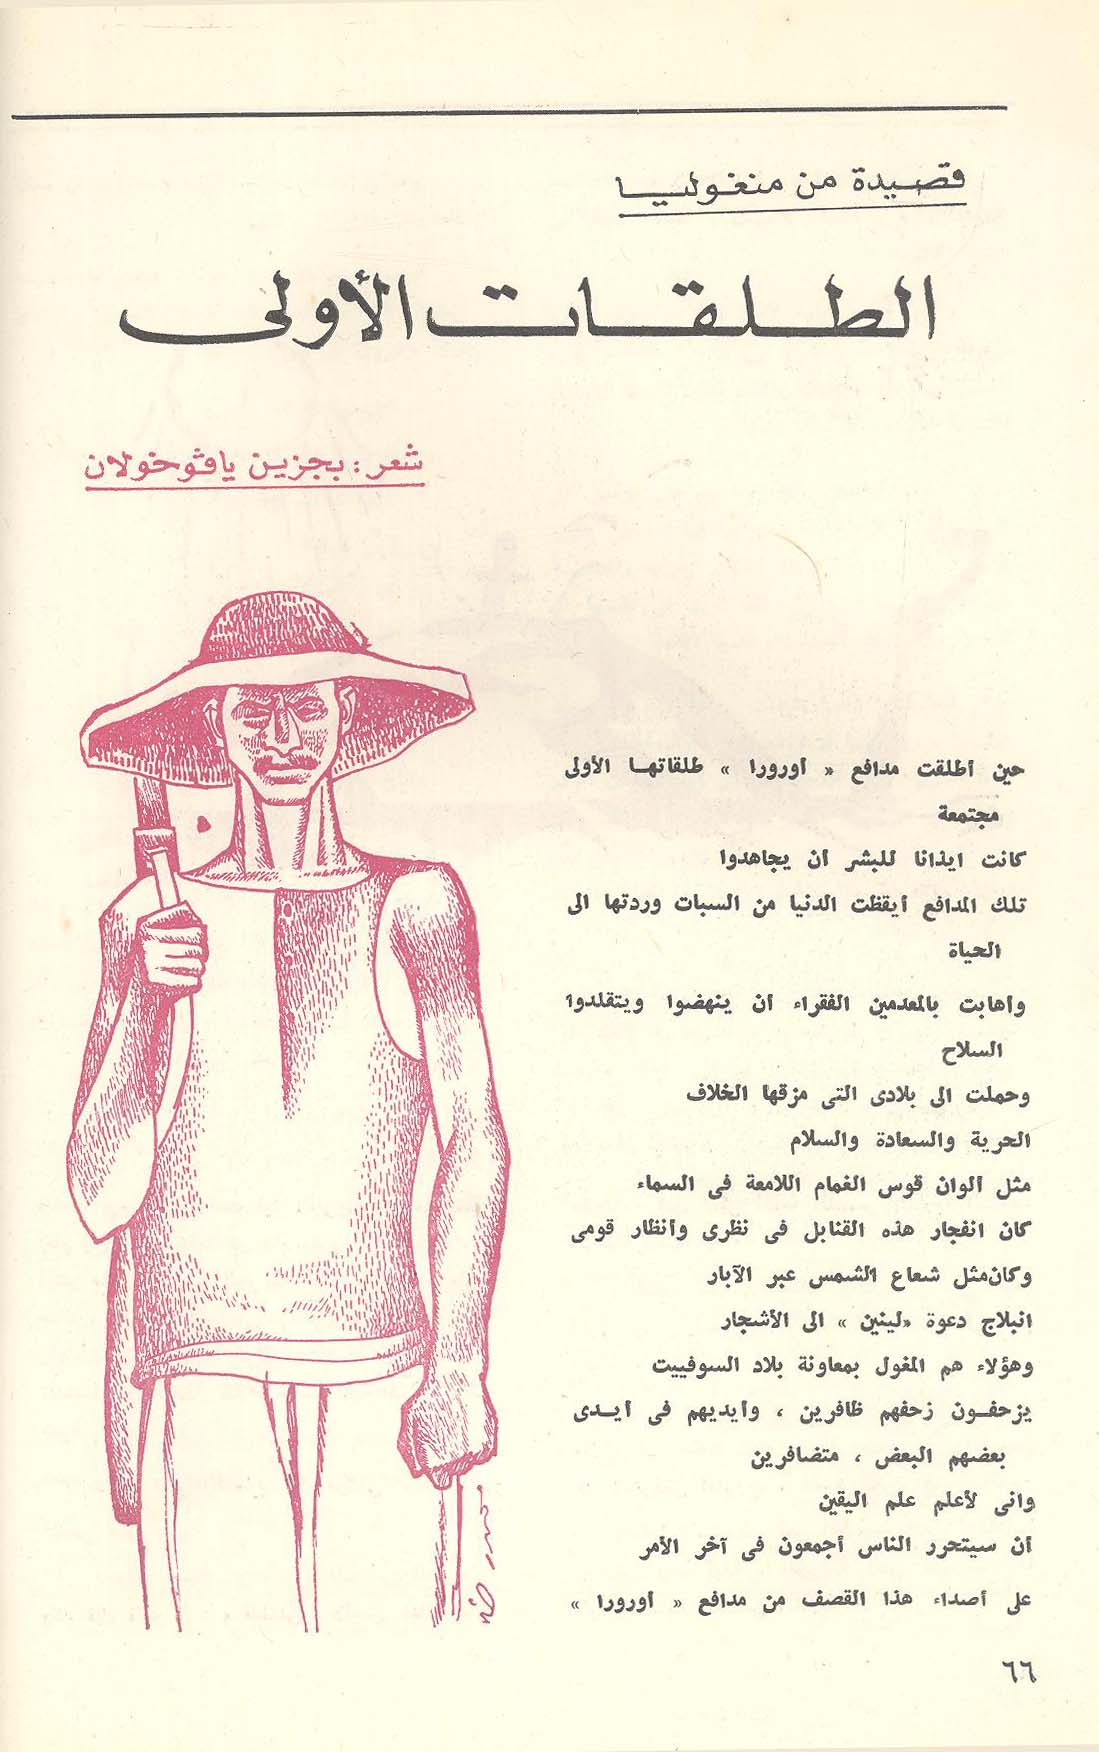 قصيدة من منغوليا
الطلقات الأولى
شعر : بجزين يافوخولان
حين أطلقت مدافع « أورورا » طلقاتها الأولى
مجتمعة
كانت ايذانا للبشر أن يجاهدوا
تلك المدافع أيقظت الدنيا من السبات وردتها الى
الحياة
وأهابت بالمعدمين الفقراء أن ينهضوا ويتقلدوا
السلاح
وحملت الى بلادى التى مزقها الخلاف
الحرية والسعادة والسلام
مثل ألوان قوس الغمام اللامعة فى السماء
كان انفجار هذه القنابل فى نظرى وأنظار قومى
وكان مثل شعاع الشمس عبر الآبار
انبلاج دعوة «لينين » الى الأشجار
وهؤلاء هم المغول بمعاونة بلاد السوفييت
يزحفون زحفهم ظافرين ، وأيديهم فى أيدى
بعضهم البعض ، متضافرين
وانى لأعلم علم اليقين
أن سيتحرر الناس أجمعون فى آخر الأمر
على أصداء هذا القصف من مدافع « أورورا »
٦٦